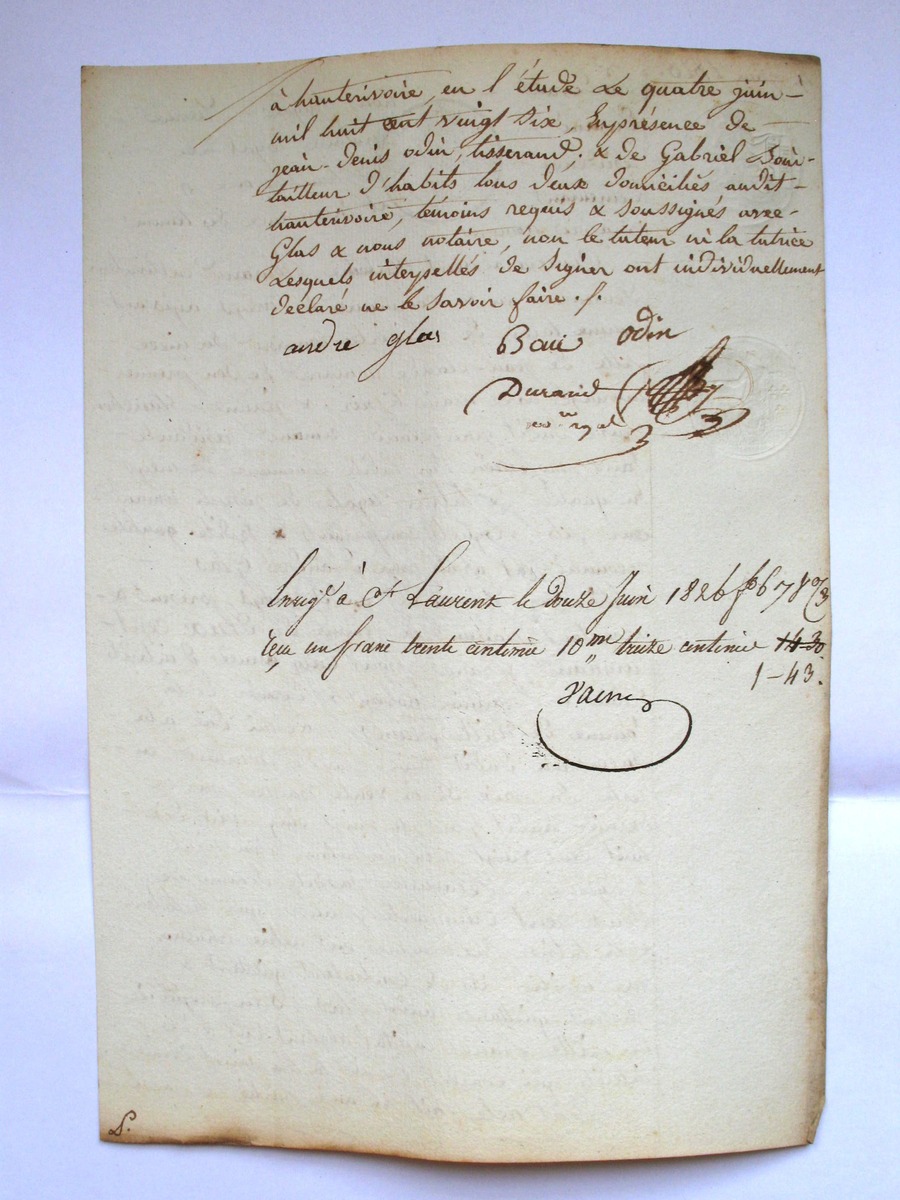 à hauterivoire, en l'étude Le quatre juin
mil huit cent vingt Six, En présence de
jean-denis odin, tisserand, & de Gabriel
tailleur d'habits tous deux domiciliés audit
hauterivoire, témoins requis & soussignés avec
Glas & nous notaire, non le tuteur ni la tutrice
Lesquels interpellés de Signer ont individuellement
déclaré ne le Savoir faire ./.
andre glas Odin
Durand
no.re royal
Enrig.é à St Laurent le douze Juin 1826 fo 67
reçu un franc trente centimes 10me treize centimes
1-43.